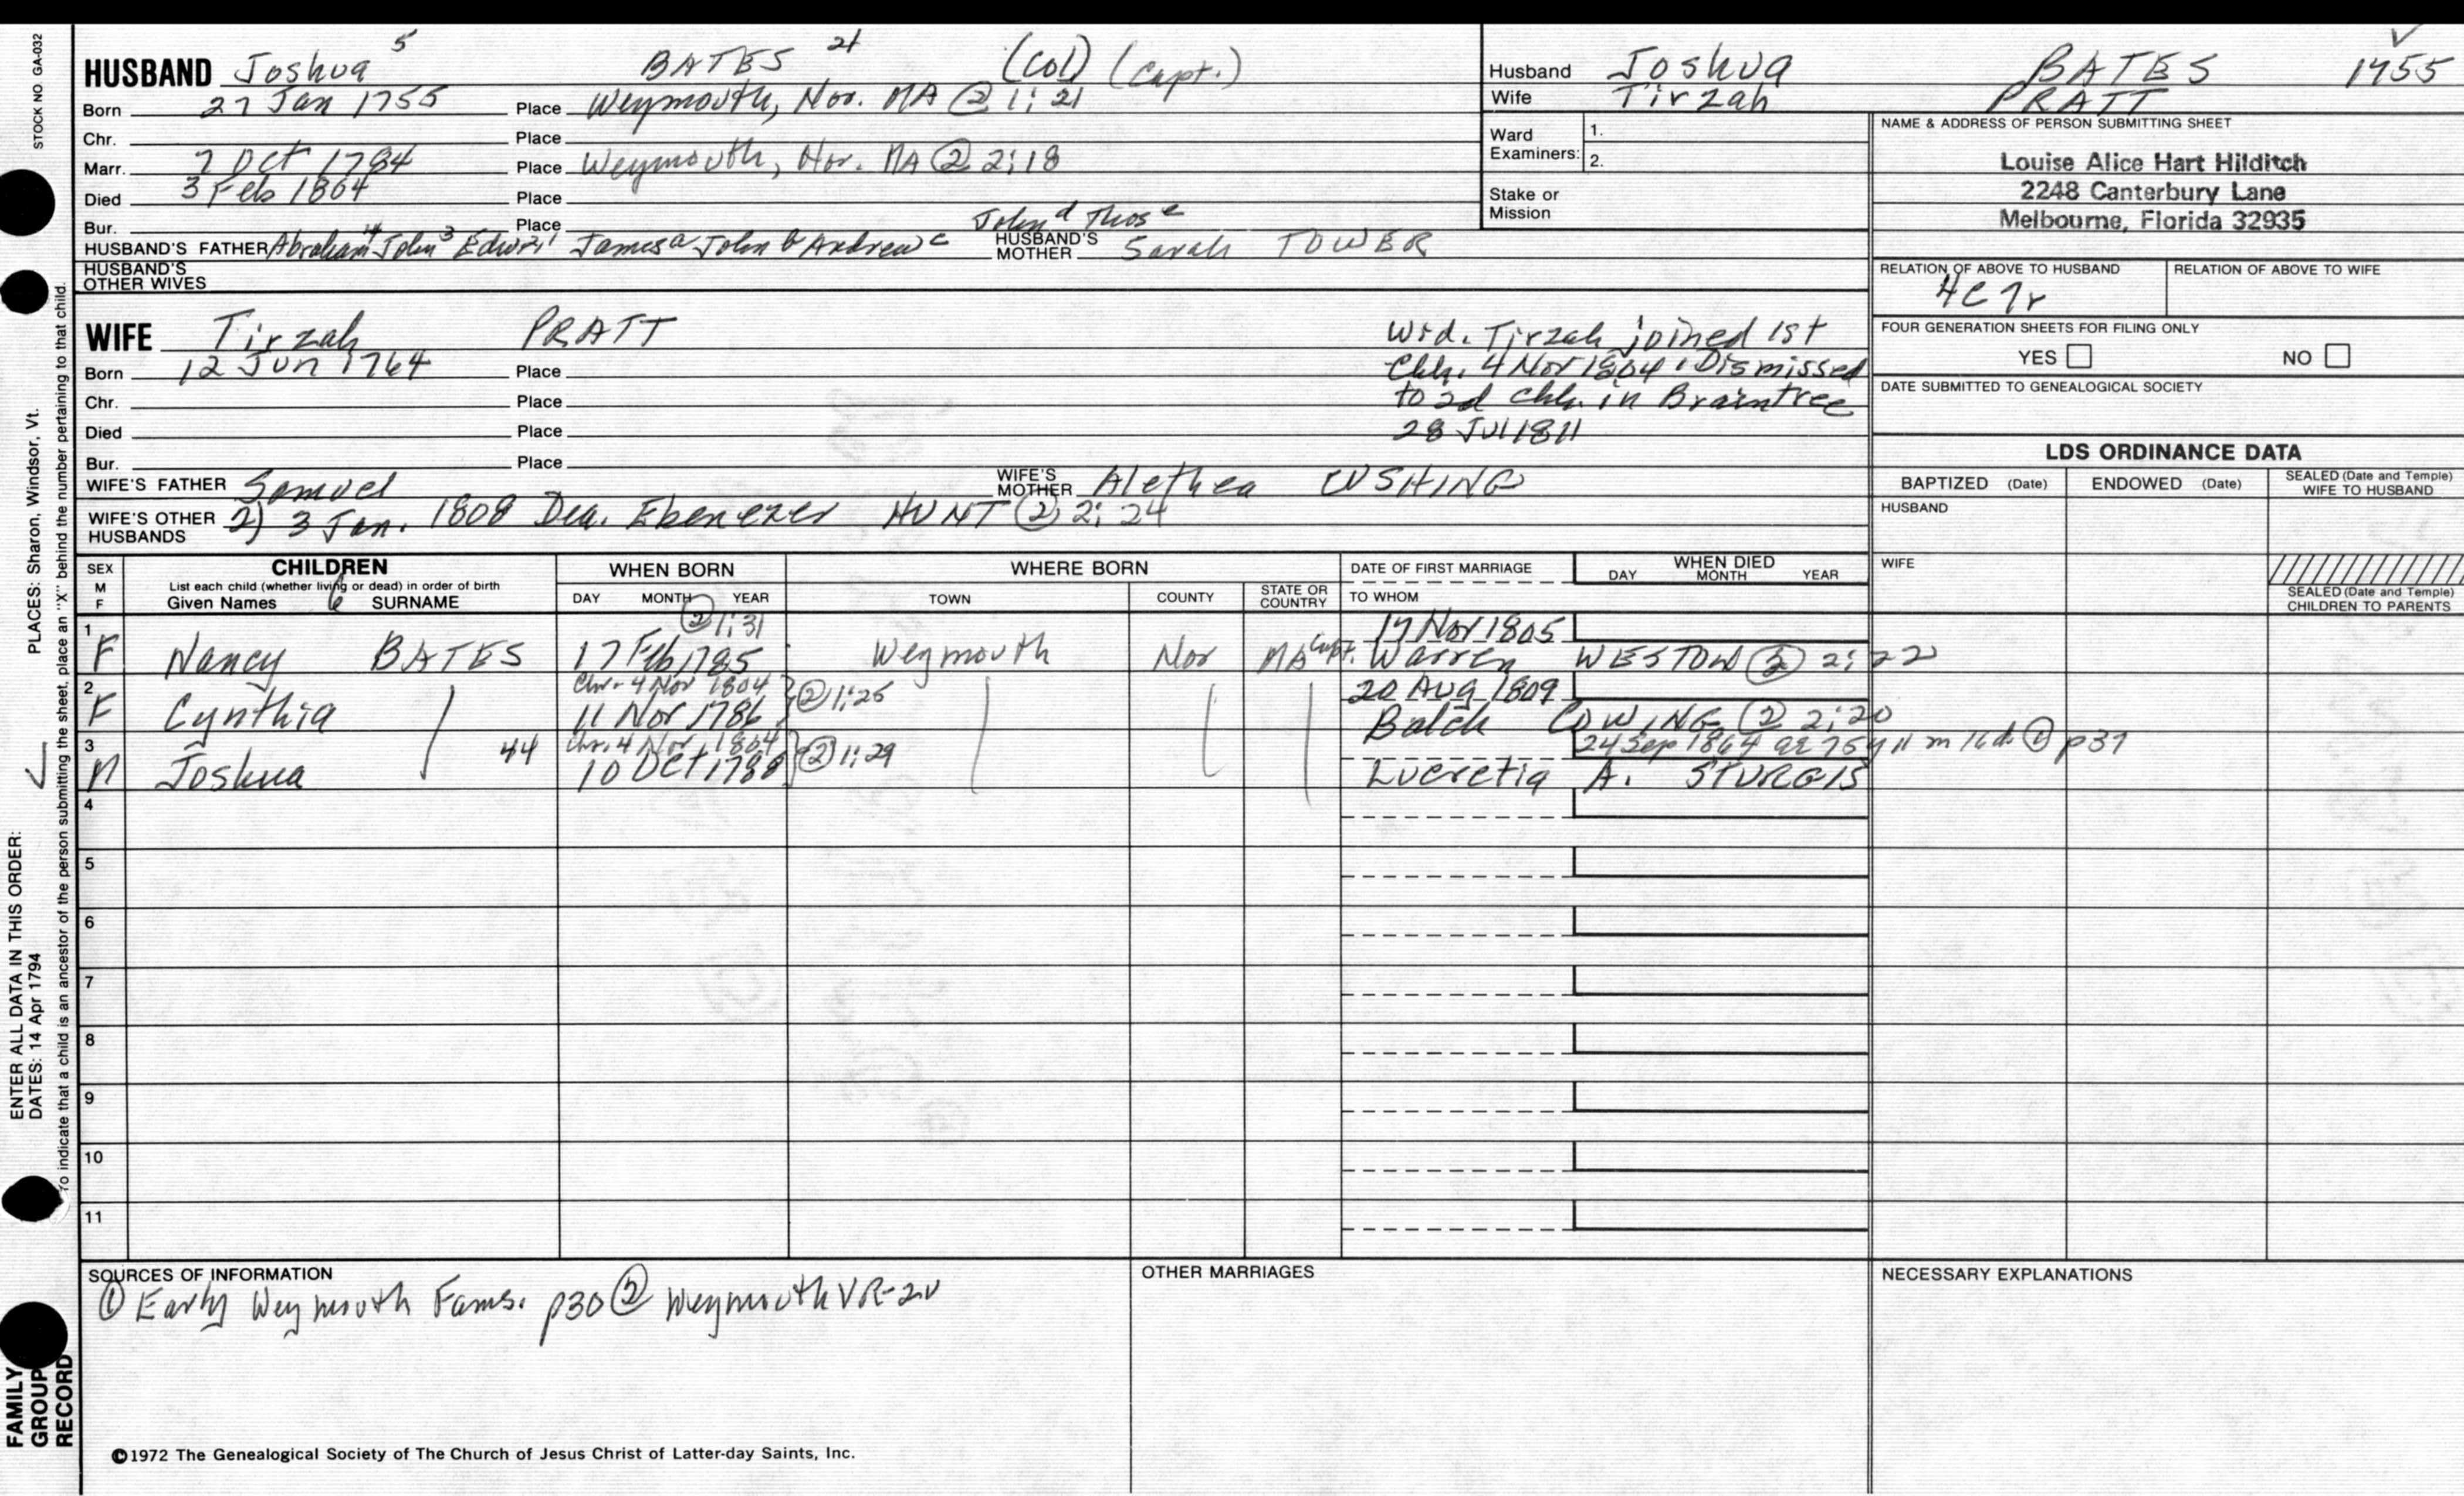 STOCK NO. GA-032
HUSBAND Joshua 5 BATES 21 (Col) (Capt.)
Born 27 Jan 1755 Place Weymouth, Nor. MA @ 1:21
Chr. Place
Marr. 7 Oct 1784 Place Weymouth, Nor. MA ② 2:18
Died 3 Feb 1804 Place
Bur. Place John d Thos e
HUSBAND'S FATHER Abraham 4 John 3 Edwd 1 James a John b Andrew c HUSBAND'S MOTHER Sarah TOWER
HUSBAND'S OTHER WIVES
Husband Joshua BATES 1755
Wife Tirzah PRATT
Ward Examiners: 1.
2.
Stake or Mission
NAME & ADDRESS OF PERSON SUBMITTING SHEET
Louise Alice Hart Hilditch
2248 Canterbury Lane
Melbourne, Florida 32935
RELATION OF ABOVE TO HUSBAND RELATION OF ABOVE TO WIFE
4C7r
FOUR GENERATION SHEETS FOR FILING ONLY
YES NO
DATE SUBMITTED TO GENEALOGICAL SOCIETY
WIFE Tirzah PRATT
Born 12 Jun 1764 Place
Chr. Place
Died Place
Bur. Place
Wid. Tirzah joined 1st
Chh. 4 Nov 1804. Dismissed
to 2d Chh. in Braintree
28 Jul 1811
WIFE'S FATHER Samuel WIFE'S MOTHER Alethea CUSHING
WIFE'S OTHER HUSBANDS 2) 3 Jan. 1808 Dea. Ebenezer HUNT ② 2:24
LDS ORDINANCE DATA
BAPTIZED (Date) ENDOWED (Date) SEALED (Date and Temple) WIFE TO HUSBAND
HUSBAND
WIFE
SEALED (Date and Temple) CHILDREN TO PARENTS
SEX M F
CHILDREN
List each child (whether living or dead) in order of birth
Given Names SURNAME
WHEN BORN
DAY MONTH YEAR
WHERE BORN
TOWN COUNTY STATE OR COUNTRY
DATE OF FIRST MARRIAGE
TO WHOM
WHEN DIED
DAY MONTH YEAR
② 1:31 19 Nov 1805
1 F Nancy BATES 17 Feb 1785 Weymouth Nor MA Capt. Warren WESTON ② 2:22
Chr. 4 Nov 1804 20 Aug 1809
2 F Cynthia 11 Nov 1786 ② 1:25 Balch COWING ② 2:20
Chr. 4 Nov 1804 24 Sep 1864 ae 75y 11m 16d ① p31
3 M Joshua 44 10 Oct 1788 ② 1:29 Lucretia A. STURGIS
4
5
6
7
8
9
10
11
SOURCES OF INFORMATION
① Early Weymouth Fams. p30 ② Weymouth VR-2v
OTHER MARRIAGES
NECESSARY EXPLANATIONS
©1972 The Genealogical Society of The Church of Jesus Christ of Latter-day Saints, Inc.
ENTER ALL DATA IN THIS ORDER:
DATES: 14 Apr 1794
PLACES: Sharon, Windsor, Vt.
To indicate that a child is an ancestor of the person submitting the sheet, place an "X" behind the number pertaining to that child.
FAMILY
GROUP
RECORD